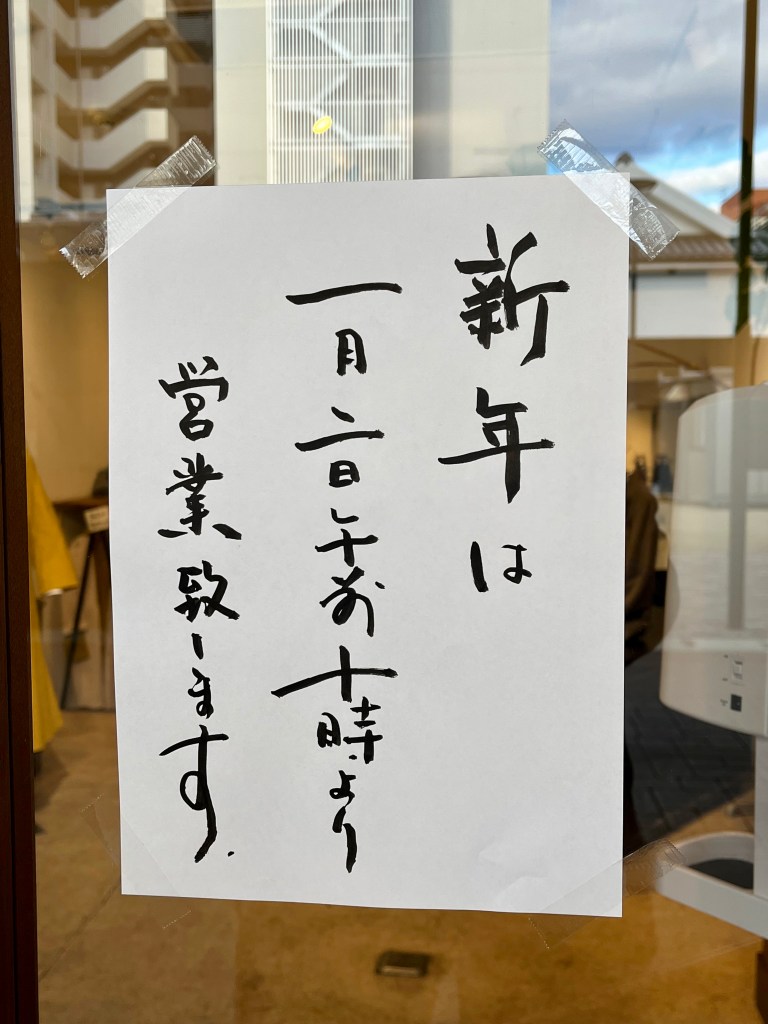 新年は
一月二日午前十時より
営業致します.